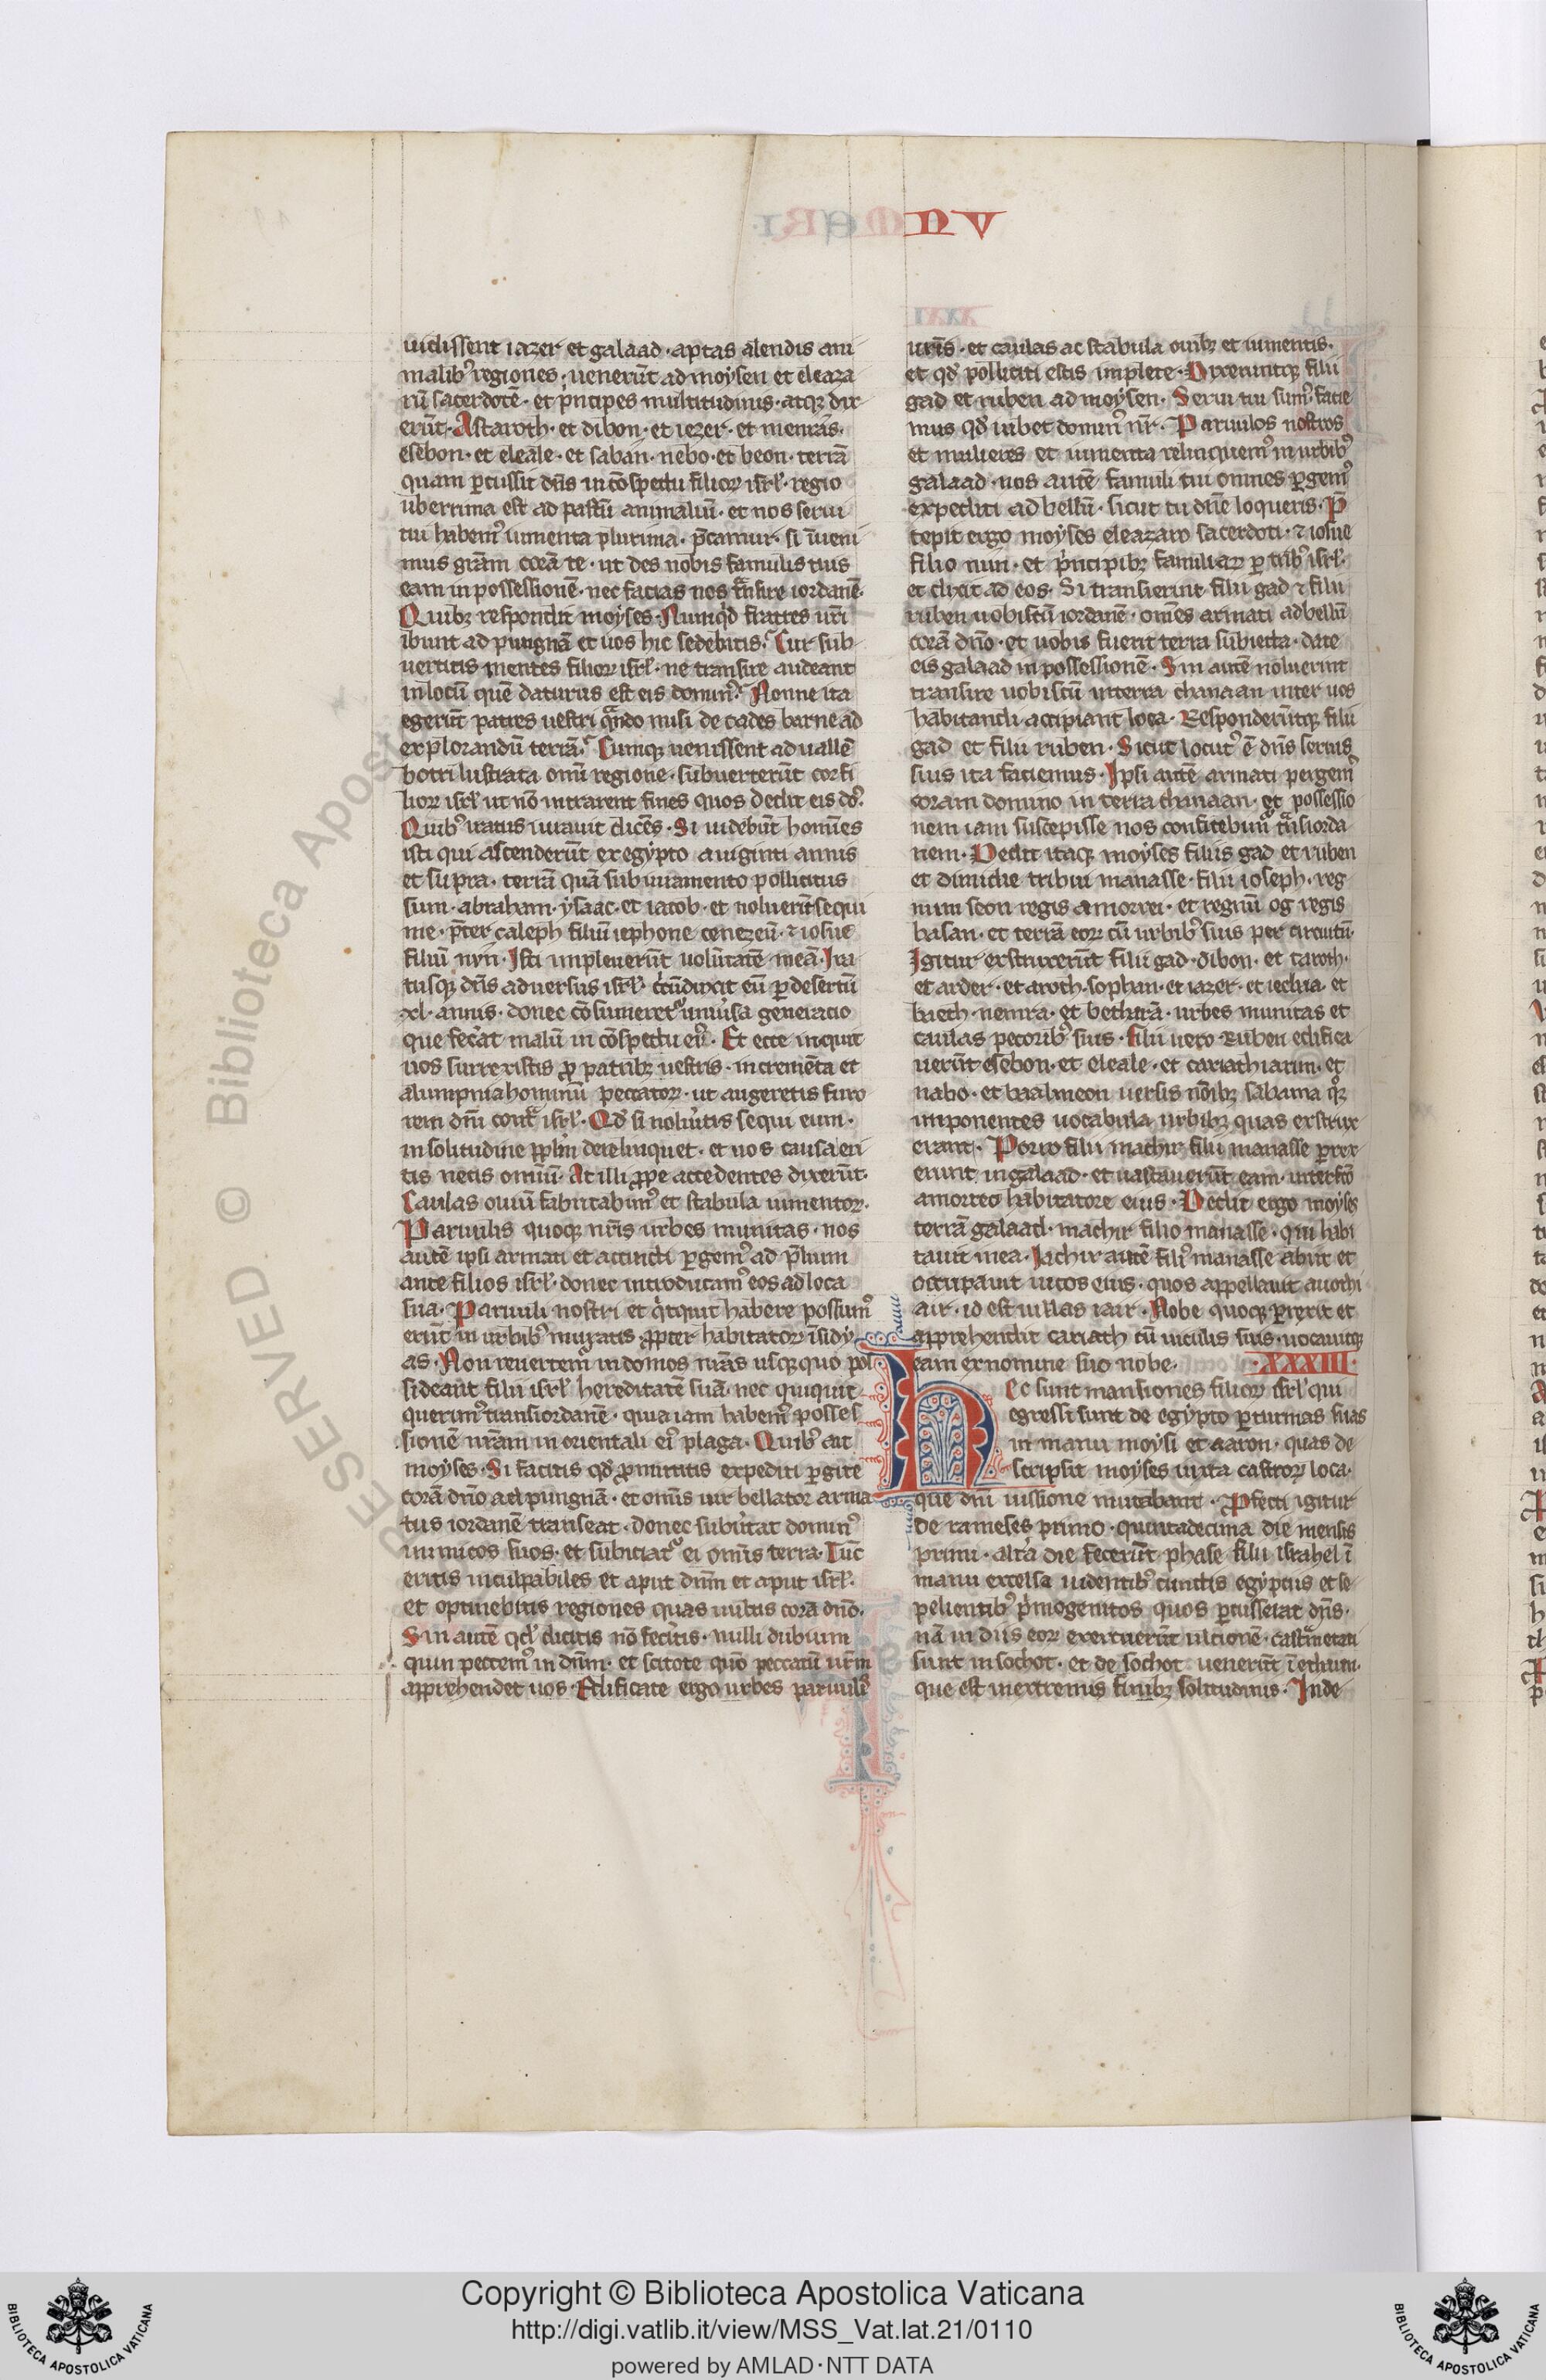 NV
uidissent iazer et galaad · aptas alendis ani
malibꝰ regiones · uenerūt ad moẏsen et eleaza
rū sacerdotē · et pⁱncipes multitudinis · atqꝫ dix
erūt · Astaroth · et dibon · et iezer · et nemras ·
esebon · et eleale · et saban · nebo · et beon · terrā
quam ꝑcussit dn̄s in cōspectu filioꝝ isrl̓ · regio
uberrima est ad pastū animaliū · et nos serui
tui habemꝰ iumenta plurima · p̄camur · si īueni
mus gr̄am corā te · ut des nobis famulis tuis
eam in possessionē · nec facias nos tͣnsire iordanē ·
Quibꝫ respondit moẏses · Numqⁱd fratres ur̄i
ibunt ad pungnā et uos hic sedebitis · Cur sub
uertitis mentes filioꝝ isrl̓ · ne transire audeant
in locū quē daturus est eis dominꝰ · Nonne ita
egerūt patres uestri qͣndo misi de cades barne ad
explorandū terrā · Cumqꝫ uenissent ad uallē
botri lustrata om̄i regione · subuerterūt cor fi
lioꝝ isrl̓ ut nō intrarent fines quos dedit eis do᷒ ·
Quibꝰ iratus iurauit dicēs · Si uidebūt homīes
isti qui ascenderūt ex egẏpto a uiginti annis
et supra · terrā quā sub iuramento pollicitus
sum · abraham · ẏsaac · et iacob · et noluerūt sequi
me · p̄ter caleph filiū iephone cenezeū · ⁊ iosue
filiū nun · Isti impleuerūt uolūtatē meā · Ira
tusqꝫ dn̄s aduersus isrl̓ · circūduxit eū ꝑ desertū
xl · annis · donec cōsumeret᷑ uniūsa generacio
que fecͥat malū in cōspectu eiꝰ · Et ecce inquit
uos surrexistis ꝓ patribꝫ uestris · incremēta et
alumpnia hominū peccatoꝝ · ut augeretis furo
rem dn̄i contͣ isrl̓ · Qd̓ si nolueͥtis sequi eum ·
in solitudine pp̄lm derelinquet · et uos causa eri
tis necis omīū · At illi ꝓpe accedentes dixerūt ·
Caulas ouiū fabricabimꝰ et stabula iumentoꝝ ·
Paruulis quoqꝫ nr̄is urbes munitas · nos
autē ipsi armati et accincti ꝑgemꝰ ad p̄lium
ante filios isrl̓ · donec introducamꝰ eos ad loca
sua · Paruuli nostri et qⁱcquit habere possumꝰ
erūt in urbibꝰ muratis ꝓpter habitatoꝝ īsidẏ
as · Non reuertemꝰ in domos nr̄as usqꝫ quo pos
sideant filii isrl̓ hereditatē suā · nec quiquit
querimꝰ transiordanē · quia iam habemꝰ posses
sionē nr̄am in orientali eiꝰ plaga · Quibꝰ ait
moẏses · Si facitis qd̓ ꝓmittitis expediti ꝑgite
corā dn̄o ad pungnā · et omīs uir bellator arma
tus iordanē transeat · donec subuͥtat dominꝰ
inimicos suos · et subiciat᷑ ei omīs terra · Tūc
eritis inculpabiles et aput dn̄m et aput isrl̓ ·
et optinebitis regiones quas uultis corā dn̄o ·
Sin autē qd̓ dicitis nō feceͥtis · nulli dubium
quin peccemꝰ in dn̄m · et scitote quō peccatū ur̄m
apprehendet uos · Edificate ergo urbes paruulꝭ
ur̄is · et caulas ac stabula ouibꝫ et iumentis ·
et qd̓ polliciti estis implete · Dixeruntqꝫ filii
gad et ruben ad moẏsen · Serui tui sumꝰ facie
mus qd̓ iubet dominꝰ nr̄ · Paruulos nostros
et mulieres et iumenta relinquemꝰ in urbibꝰ
galaad · nos autē famuli tui omnes ꝑgemꝰ
expediti ad bellū · sicut tu dn̄e loqueris · P̄
cepit ergo moẏses eleazaro sacerdoti · ⁊ iosue
filio nun · et pⁱncipibꝫ familiaꝝ ꝑ tribꝰ isrl̓ ·
et dixit ad eos · Si transierint filii gad ⁊ filii
ruben uobiscū iordanē · om̄es armati ad bellū
corā dn̄o · et uobis fuerit terra subiecta · date
eis galaad in possessionē · Sin autē noluerint
transire uobiscū in terra chanaan inter uos
habitandi accipiant loca · Responderūtqꝫ filii
gad et filii ruben · Sicut locutꝰ ē dn̄s seruis
suis ita faciemus · Ipsi autē armati pergemꝰ
coram domino in terra chanaan · et possessio
nem iam suscepisse nos confitebim᷑ tͣnsiorda
nem · Dedit itaqꝫ moẏses filiis gad et ruben
et dimidie tribui manasse · filii ioseph · reg
num seon regis amorrei · et regnū og regis
basan · et terrā eoꝝ cū urbibꝰ suis per circuitū ·
Igitur exstruxerūt filii gad · dibon · et taroth ·
et arder · et aroth · sophan · et iazer · et iecbia · et
baeth · nemra · et betharā · urbes munitas et
caulas pecoribꝰ suis · Filii uero Ruben edifica
uerūt esebon · et eleale · et cariathiarim · et
nabo · et baalmeon uersis nōibꝫ sabama qͦꝫ
imponentes uocabula urbibꝫ quas exstrux
erant · Porro filii machir filii manasse ꝑrex
erunt in galaad · et uastauerūt eam · interfc̄o
amorreo habitatore eius · Dedit ergo moẏses
terrā galaad · machir filio manasse · qui habi
tauit in ea · Iachir autē filiꝰ manasse abiit et
occupauit uicos eius · quos appellauit auothi
air · id est uillas iair · Nobe quoqꝫ ꝑrexit et
apprehendit cariath cū uiculis suis · uocauitqꝫ
eam ex nomine suo nobe · · XXXIII ·
Hec sunt mansiones filioꝝ isrl̓ qui
egressi sunt de egẏpto ꝑ turmas suas
in manu moẏsi et aaron · quas de
scripsit moẏses iuxta castroꝝ loca ·
que dn̄i iussione mutabant · Ꝓfecti igitur
de rameses primo · quintadecima die mensis
primi · altͥa die fecerūt phase filii israhel ī
manu excelsa uidentibꝰ cunctis egẏptiis et se
pelientibꝰ pⁱmogenitos quos ꝑcusserat dn̄s ·
nā in diis eoꝝ exercuerūt ulcionē · castͣmetati
sunt in sochot · et de sochot uenerūt ī etham ·
que est in extremis finibꝫ solitudinis · Inde
Copyright © Biblioteca Apostolica Vaticana
http://digi.vatlib.it/view/MSS_Vat.lat.21/0110
powered by AMLAD·NTT DATA
BIBLIOTECA APOSTOLICA VATICANA
BIBLIOTECA APOSTOLICA VATICANA
RESERVED © Biblioteca Apost